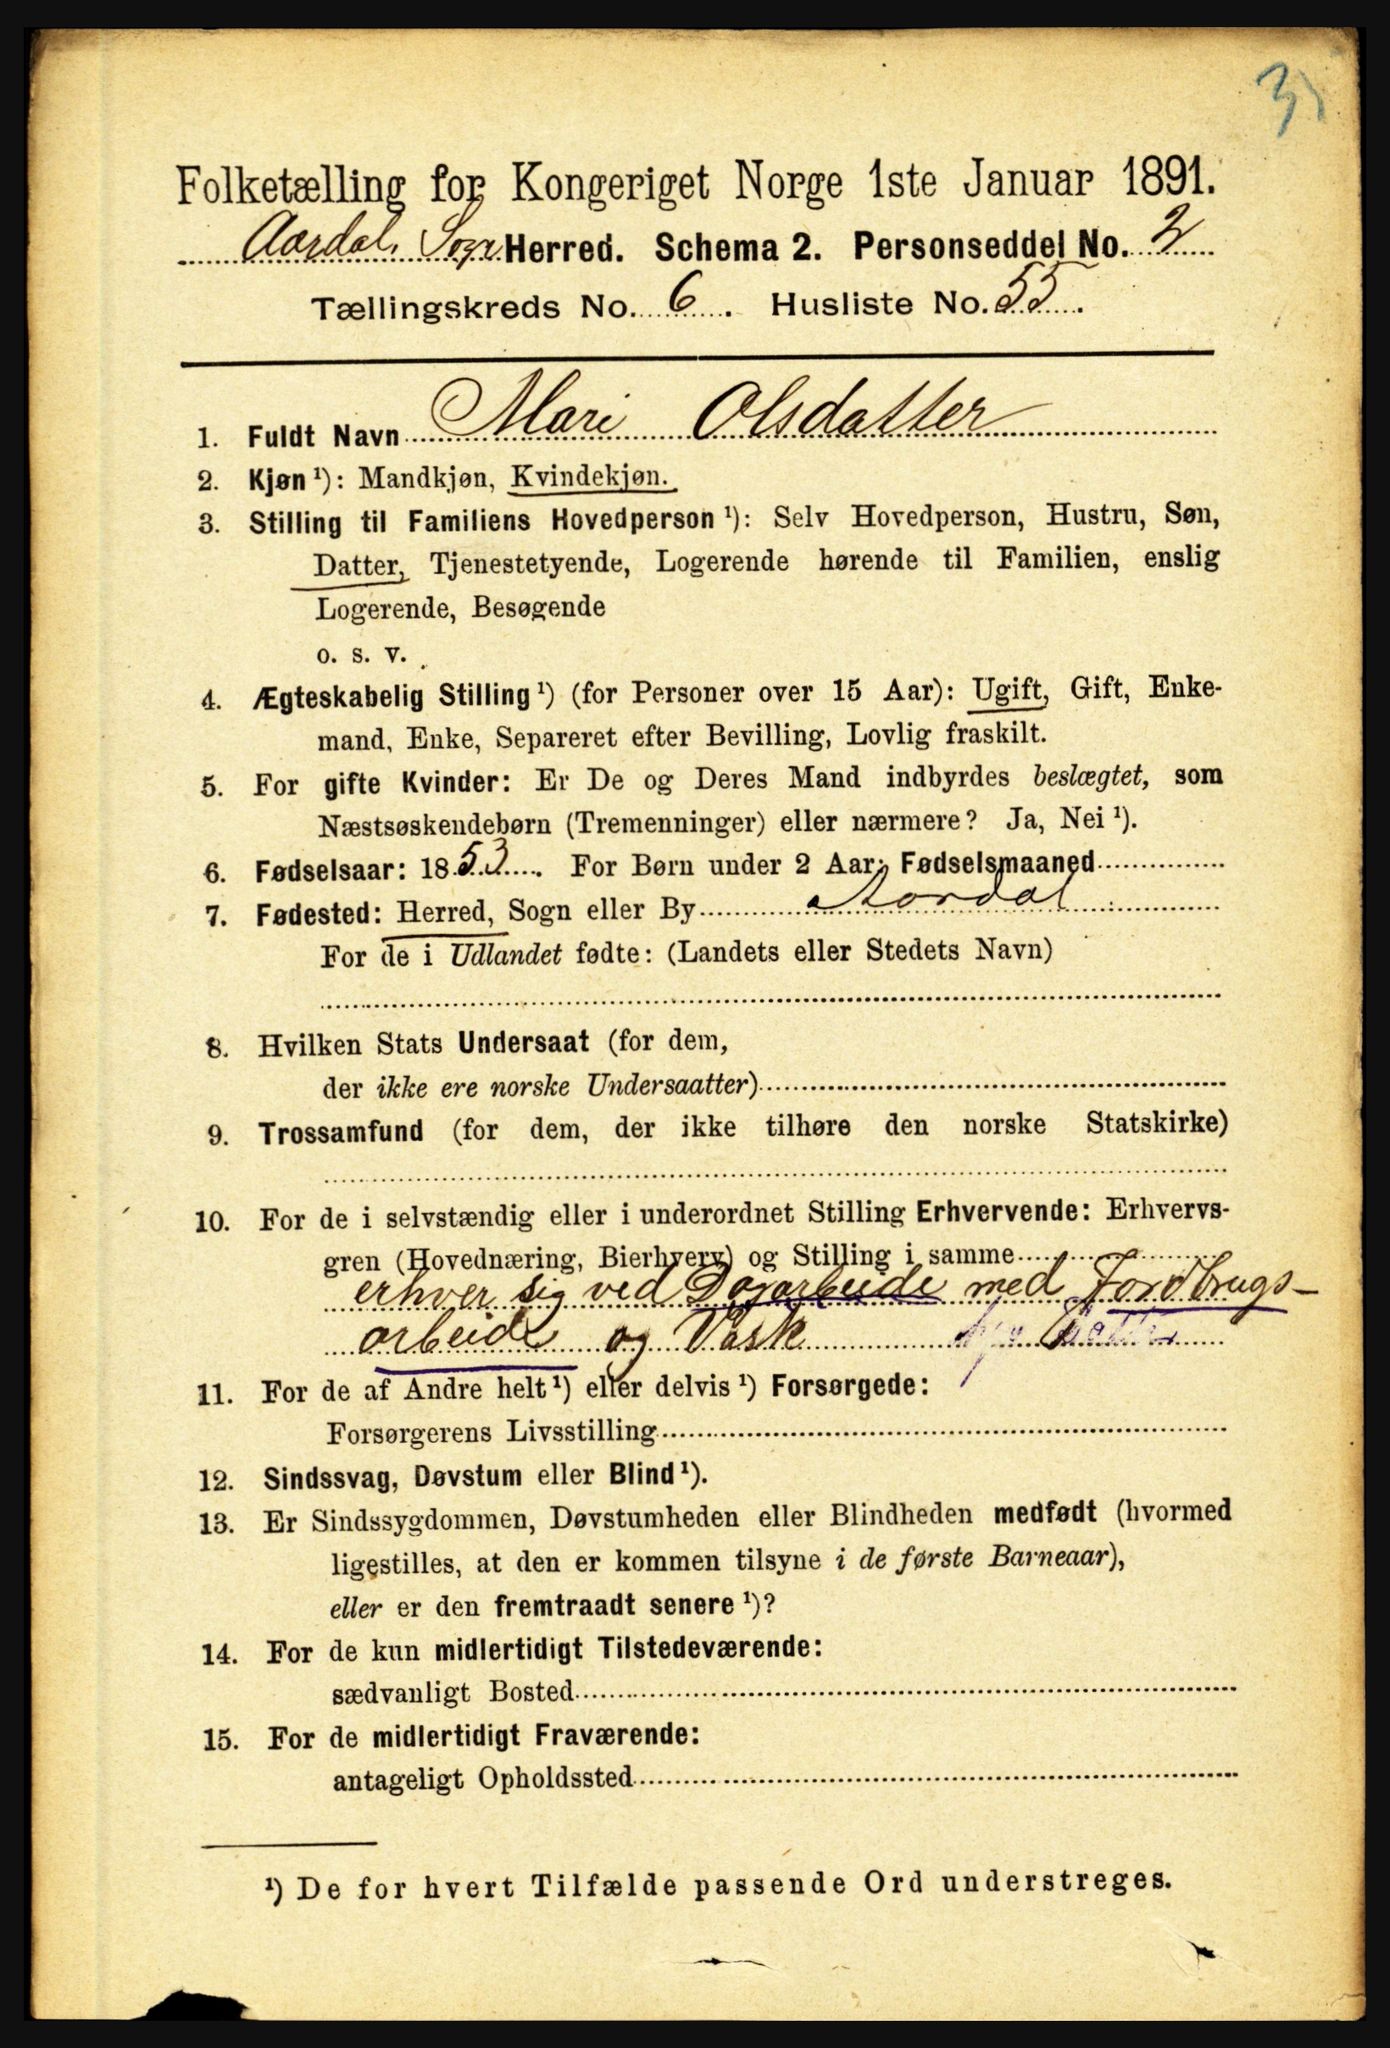 3
Folketælling for Kongeriget Norge 1ste Januar 1891.
Aardal, Sogn Herred. Schema 2. Personseddel No. 2
Tællingskreds No. 6. Husliste No. 55.
1. Fuldt Navn Mari Olsdatter
2. Kjøn ¹): Mandkjøn, Kvindekjøn.
3. Stilling til Familiens Hovedperson ¹): Selv Hovedperson, Hustru, Søn,
Datter, Tjenestetyende, Logerende hørende til Familien, enslig
Logerende, Besøgende
o. s. v.
4. Ægteskabelig Stilling ¹) (for Personer over 15 Aar): Ugift, Gift, Enke-
mand, Enke, Separeret efter Bevilling, Lovlig fraskilt.
5. For gifte Kvinder: Er De og Deres Mand indbyrdes beslægtet, som
Næstsøskendebørn (Tremenninger) eller nærmere? Ja, Nei ¹).
6. Fødselsaar: 1853. For Børn under 2 Aar: Fødselsmaaned
7. Fødested: Herred, Sogn eller By Aardal
For de i Udlandet fødte: (Landets eller Stedets Navn)
8. Hvilken Stats Undersaat (for dem,
der ikke ere norske Undersaatter)
9. Trossamfund (for dem, der ikke tilhøre den norske Statskirke)
10. For de i selvstændig eller i underordnet Stilling Erhvervende: Erhvervs-
gren (Hovednæring, Bierhverv) og Stilling i samme
erhver sig ved Dagarbeide med Jordbrugs-
arbeide og Vask
11. For de af Andre helt ¹) eller delvis ¹) Forsørgede:
Forsørgerens Livsstilling
12. Sindssvag, Døvstum eller Blind ¹).
13. Er Sindssygdommen, Døvstumheden eller Blindheden medfødt (hvormed
ligestilles, at den er kommen tilsyne i de første Barneaar),
eller er den fremtraadt senere ¹)?
14. For de kun midlertidigt Tilstedeværende:
sædvanligt Bosted
15. For de midlertidigt Fraværende:
antageligt Opholdssted
¹) De for hvert Tilfælde passende Ord understreges.